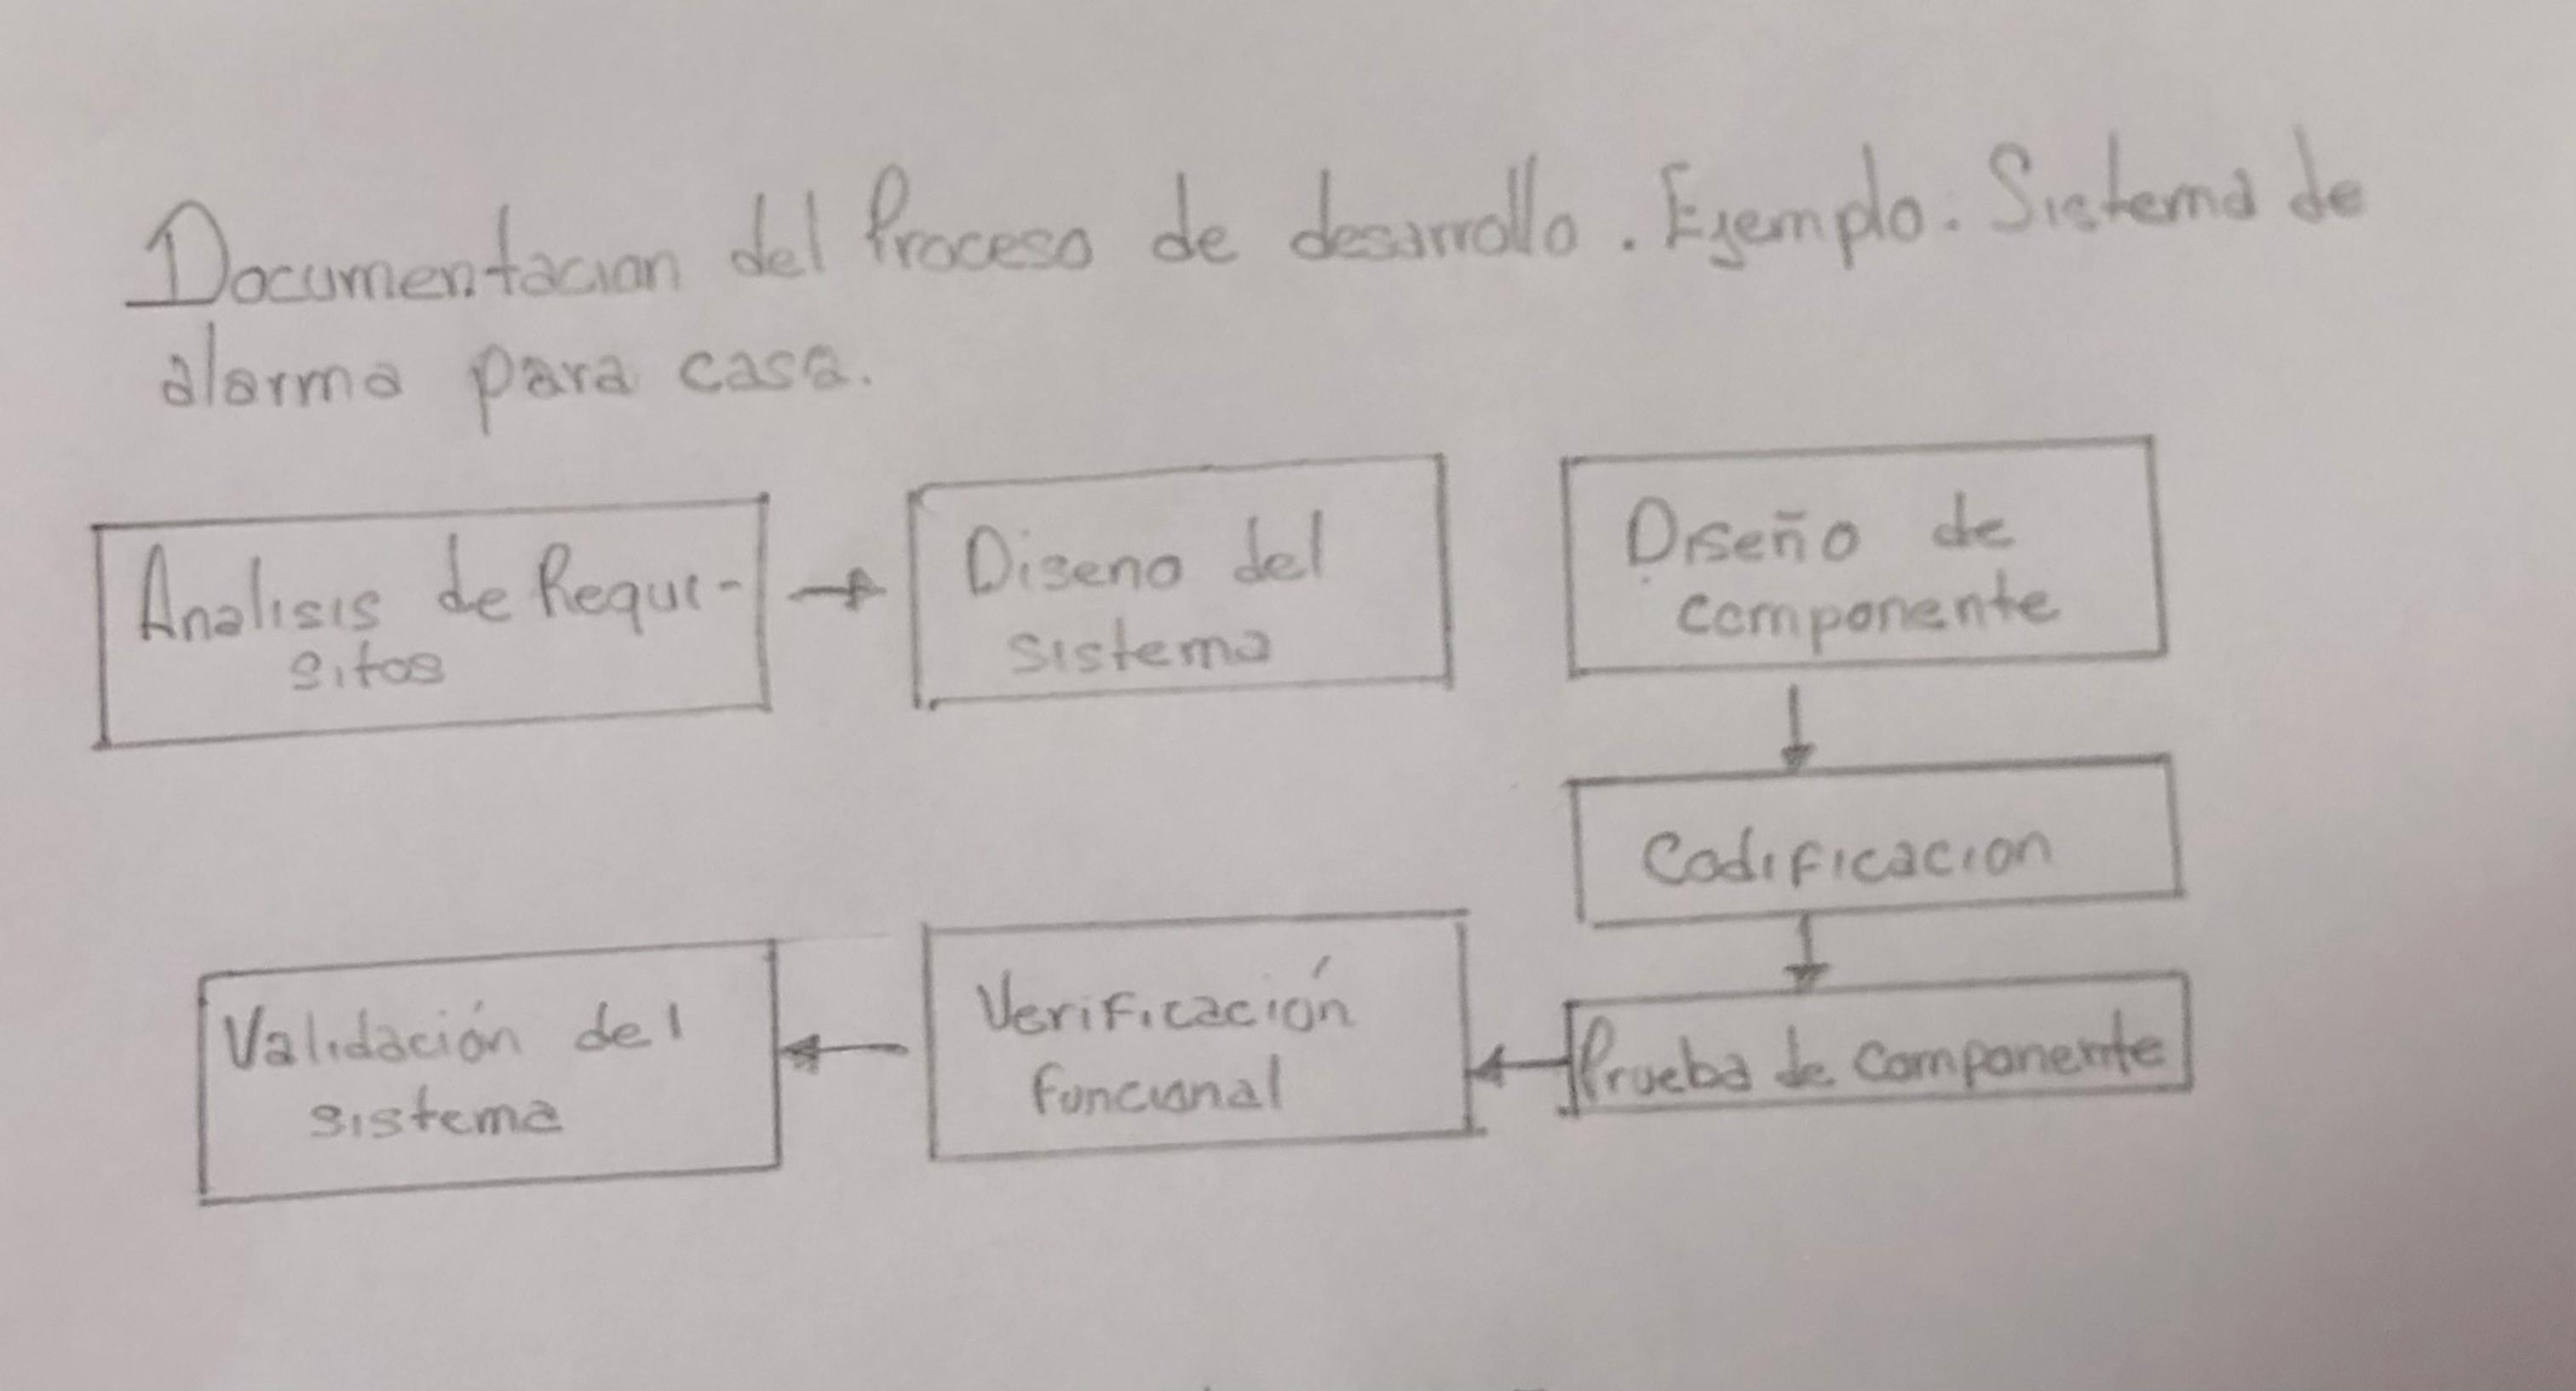 Documentacion del Proceso de desarrollo. Ejemplo. Sistema de
alarma para casa.
Analisis de Requi-
sitos
Diseno del
sistema
Diseño de
componente
Codificacion
Prueba de componente
Verificación
funcional
Validación del
sistema